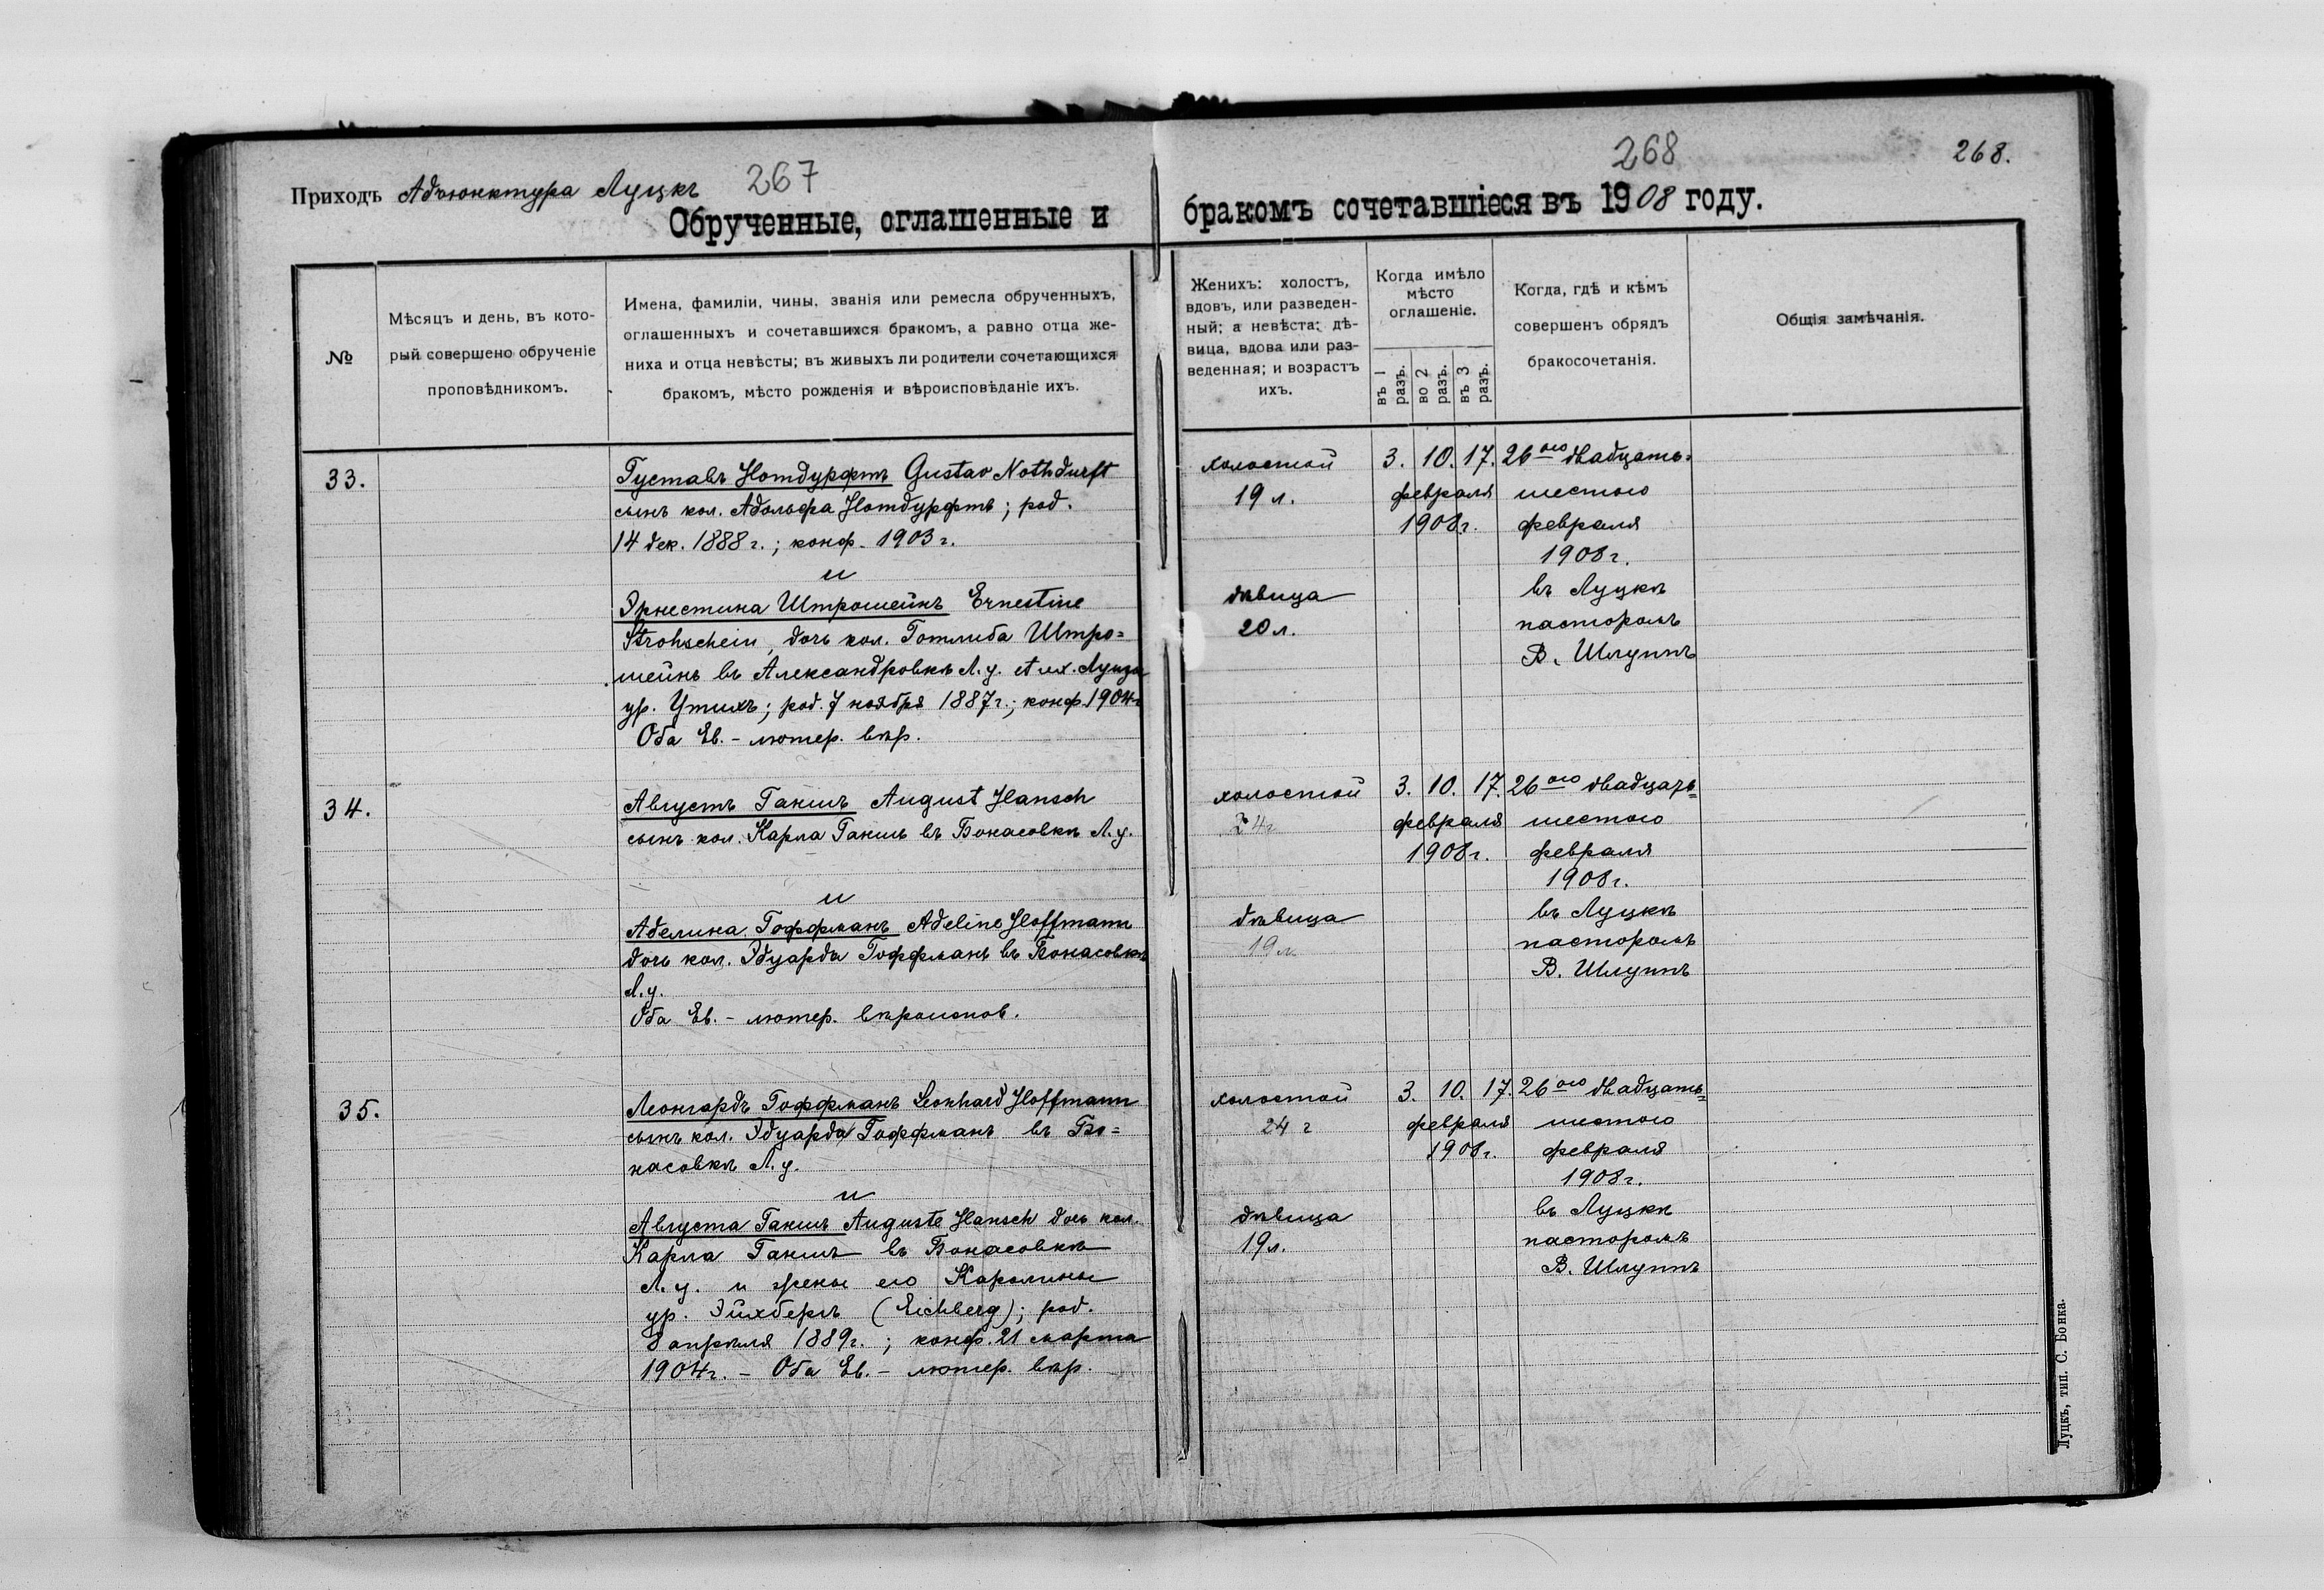 267
268
268.
Приходъ Адъюнктура Луцкъ
Обрученные, оглашенные и бракомъ сочетавшіеся въ 1908 году.
№
Мѣсяцъ и день, въ кото-
рый совершено обрученіе
проповѣдникомъ.
Имена, фамиліи, чины, званія или ремесла обрученныхъ,
оглашенныхъ и сочетавшихся бракомъ, а равно отца же-
ниха и отца невѣсты; въ живыхъ ли родители сочетающихся
бракомъ, мѣсто рожденія и вѣроисповѣданіе ихъ.
Женихъ: холостъ,
вдовъ, или разведен-
ный; а невѣста: дѣ-
вица, вдова или раз-
веденная; и возрастъ
ихъ.
Когда имѣло
мѣсто
оглашеніе.
въ 1
разъ.
во 2
разъ.
въ 3
разъ.
Когда, гдѣ и кѣмъ
совершенъ обрядъ
бракосочетанія.
Общія замѣчанія.
33.
Густавъ Нотдурфтъ Gustav Nothdurft
сынъ кол. Адольфа Нотдурфтъ; род.
14 дек. 1888 г.; конф. 1903 г.
и
Эрнестина Штрошейнъ Ernestine
Strohschein, дочь кол. Готлиба Штро=
шейнъ въ Александровкѣ Л. у.
ур. Утихъ; род. 7 ноября 1887 г.; конф. 1904 г
Оба Ев. - лютер. вѣр.
холостой
19 л.
дѣвица
20 л.
3. 10. 17.
февраля
1908 г.
26ого двадцать=
шестого
февраля
1908 г.
въ Луцкѣ
пасторомъ
В. Шлуппъ
34.
Августъ Ганшъ August Hansch
сынъ кол. Карла Ганшъ въ Бокасовкѣ Л. у.
и
Аделина Гоффманъ Adeline Hoffmann
дочь кол. Эдуарда Гоффманъ въ Бокасовкѣ
Л. у.
Оба Ев. - лютер. вѣроиспов.
холостой
24 г
дѣвица
19 л.
3. 10. 17.
февраля
1908 г.
26ого двадцать=
шестого
февраля
1908 г.
въ Луцкѣ
пасторомъ
В. Шлуппъ
35.
Леонгардъ Гоффманъ Leonhard Hoffmann
сынъ кол. Эдуарда Гоффманъ въ Бо=
касовкѣ Л. у.
и
Августа Ганшъ Auguste Hansch дочь кол.
Карла Ганшъ въ Бокасовкѣ
Л. у. и жены его Каролины
ур. Эйхбергъ (Eichberg); род.
8 апрѣля 1889 г.; конф. 21 марта
1904 г. - Оба Ев. - лютер. вѣр.
холостой
24 г
дѣвица
19 л.
3. 10. 17.
февраля
1908 г.
26ого двадцать=
шестого
февраля
1908 г.
въ Луцкѣ
пасторомъ
В. Шлуппъ
Луцкъ, тип. С. Бонка.